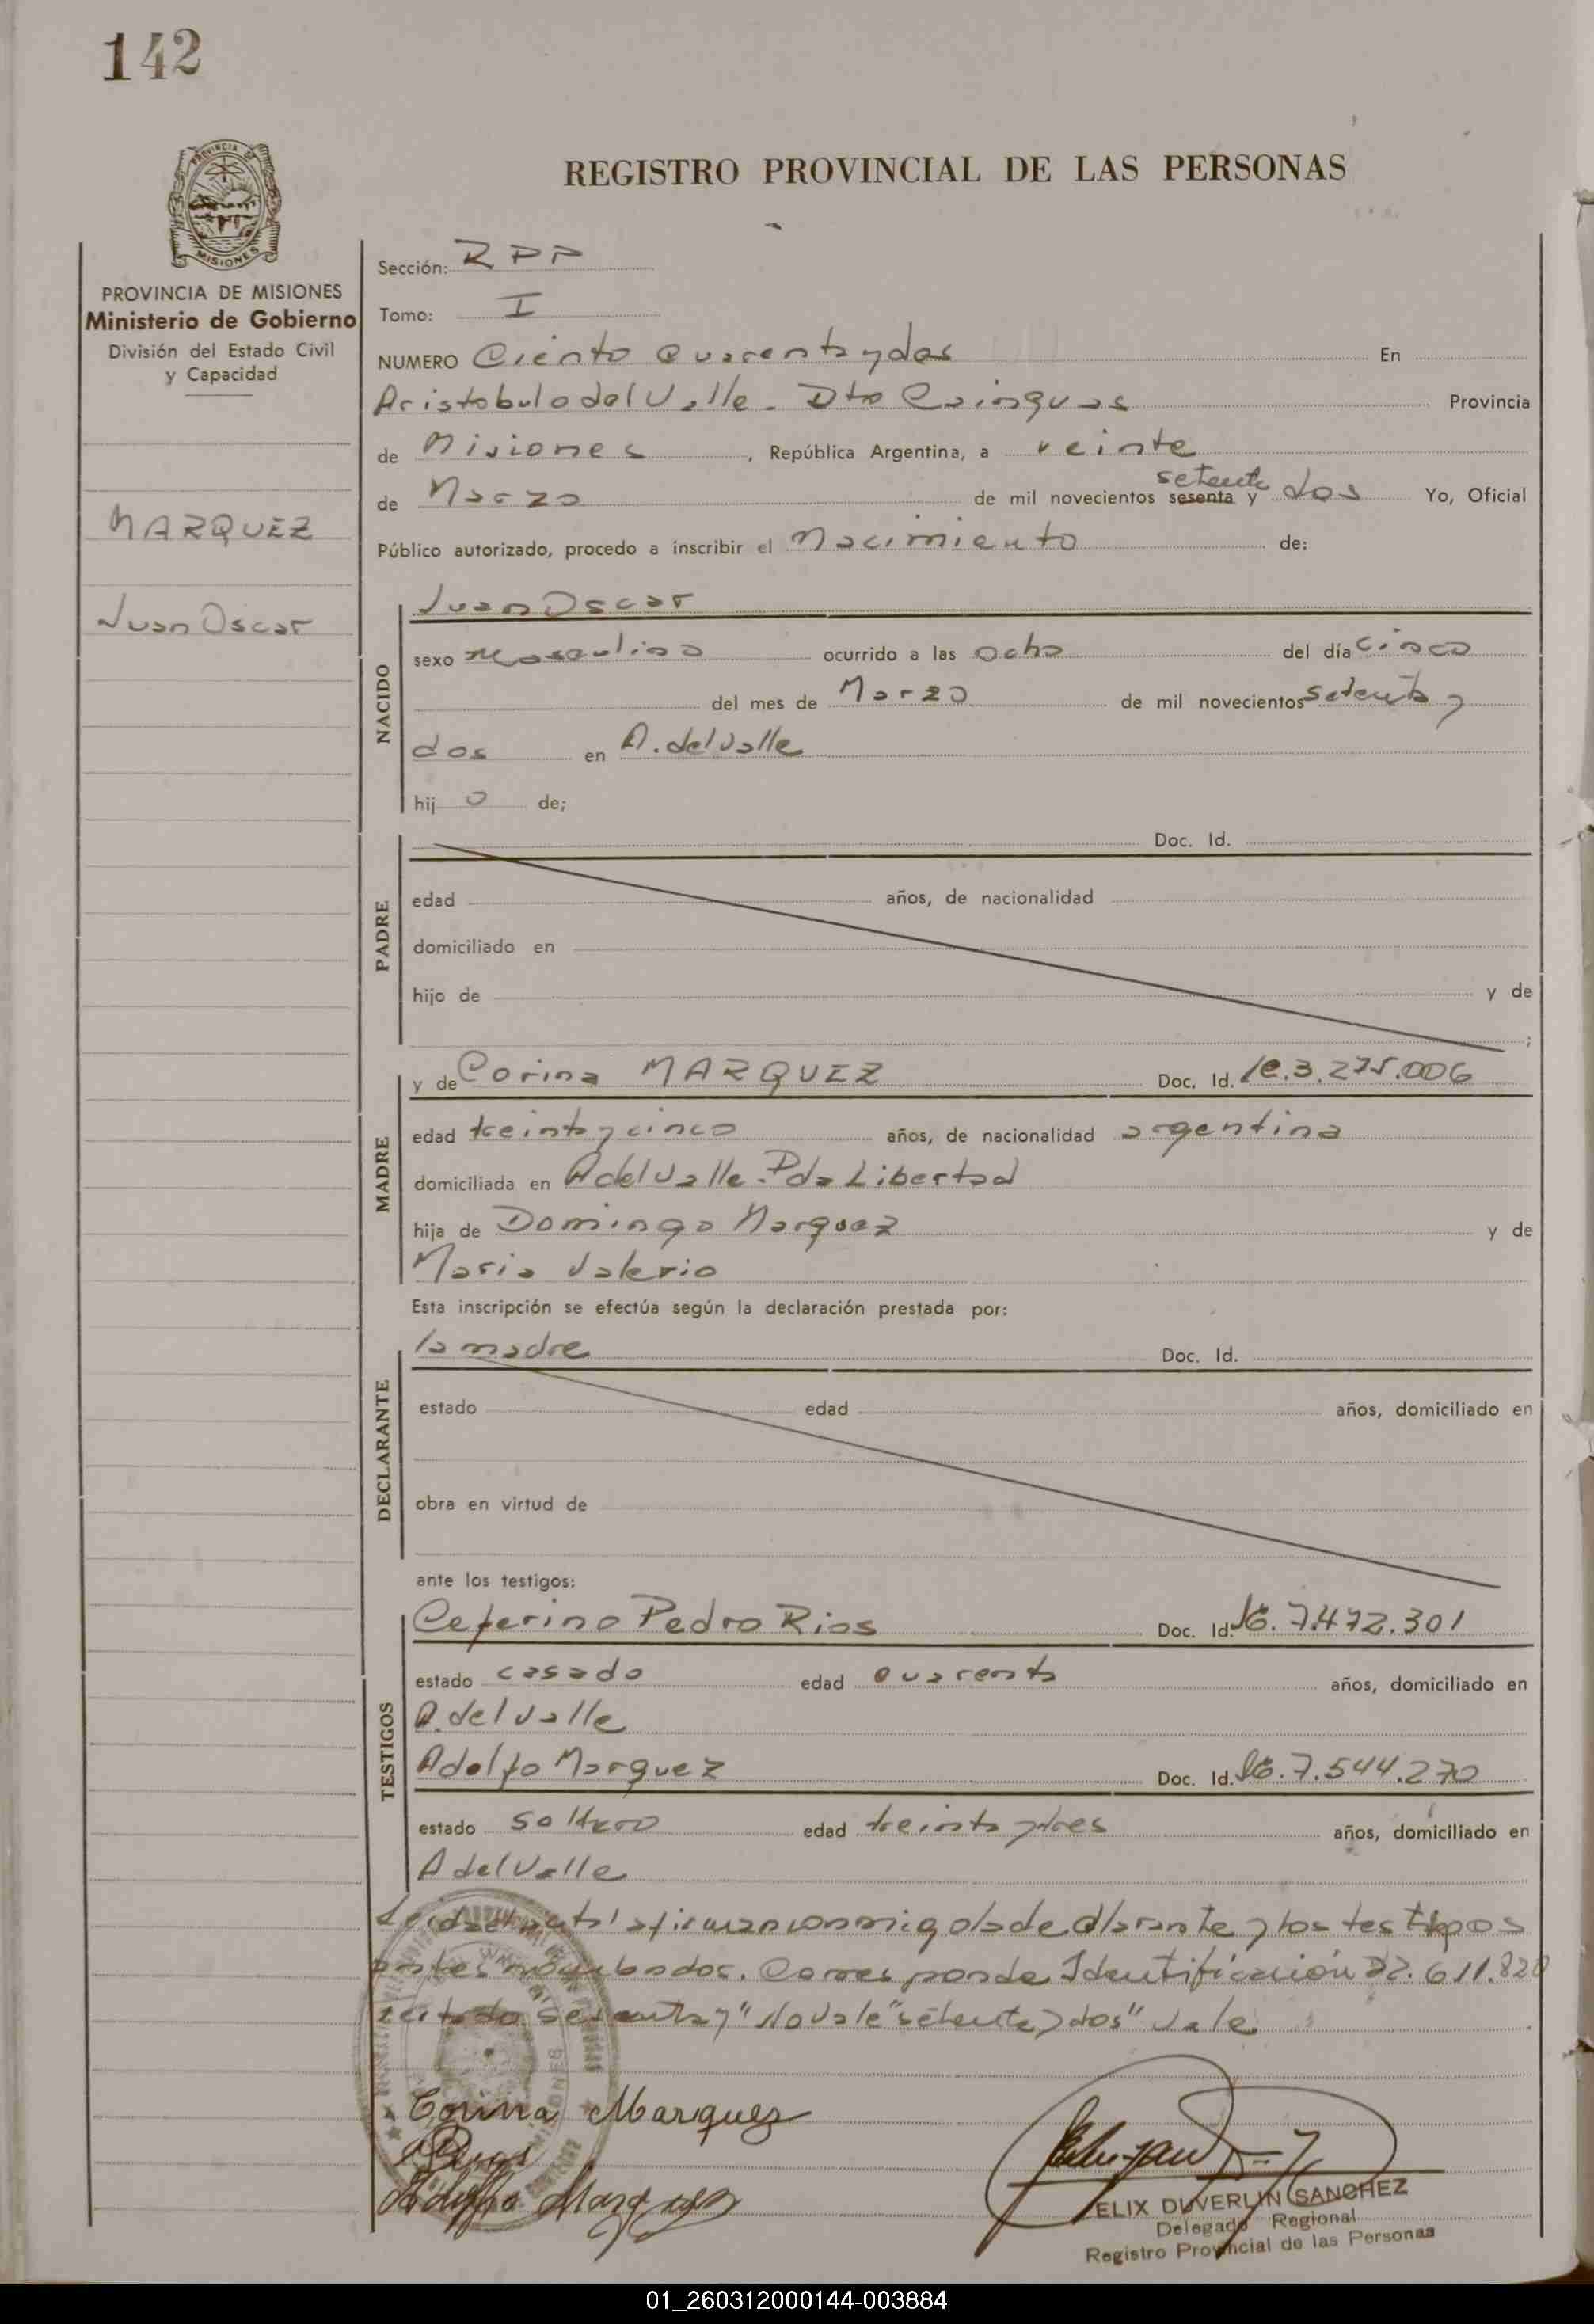 142
REGISTRO PROVINCIAL DE LAS PERSONAS
PROVINCIA DE MISIONES
Ministerio de Gobierno
División del Estado Civil
y Capacidad
MARQUEZ
Juan Oscar
Sección: RPP
Tomo: I
NUMERO Ciento Cuarenta y dos En
Aristobulo del Valle. Dto Cainguas Provincia
de Misiones, República Argentina, a veinte
setenta
de Marzo de mil novecientos sesenta y dos Yo, Oficial
Público autorizado, procedo a inscribir el Nacimiento de:
NACIDO
Juan Oscar
sexo Masculino ocurrido a las Ocho del día Cinco
del mes de Marzo de mil novecientos setenta y
dos en A. del Valle
hijo de;
PADRE
Doc. Id.
edad años, de nacionalidad
domiciliado en
hijo de y de
;
MADRE
y de Corina MARQUEZ Doc. Id. 3.275.006
edad treinta y cinco años, de nacionalidad argentina
domiciliada en A del Valle. Pda Libertad
hija de Domingo Marquez y de
Maria Valerio
Esta inscripción se efectúa según la declaración prestada por:
DECLARANTE
la madre Doc. Id.
estado edad años, domiciliado en
obra en virtud de
ante los testigos:
TESTIGOS
Ceferino Pedro Rios Doc. Id. 7.472.301
estado casado edad cuarenta años, domiciliado en
A. del Valle
Adolfo Marquez Doc. Id. 7.544.270
estado soltero edad treinta y tres años, domiciliado en
A del Valle
Leida el acta la firman conmigo la declarante y los testigos
antes nombrados. Corresponde Identificación 22.611.820
testado sesenta y "No vale "setenta y dos" vale
Corina Marquez
Rios
Adolfo Marquez
FELIX DUVERLIN SANCHEZ
Delegado Regional
Registro Provincial de las Personas
01_260312000144-003884